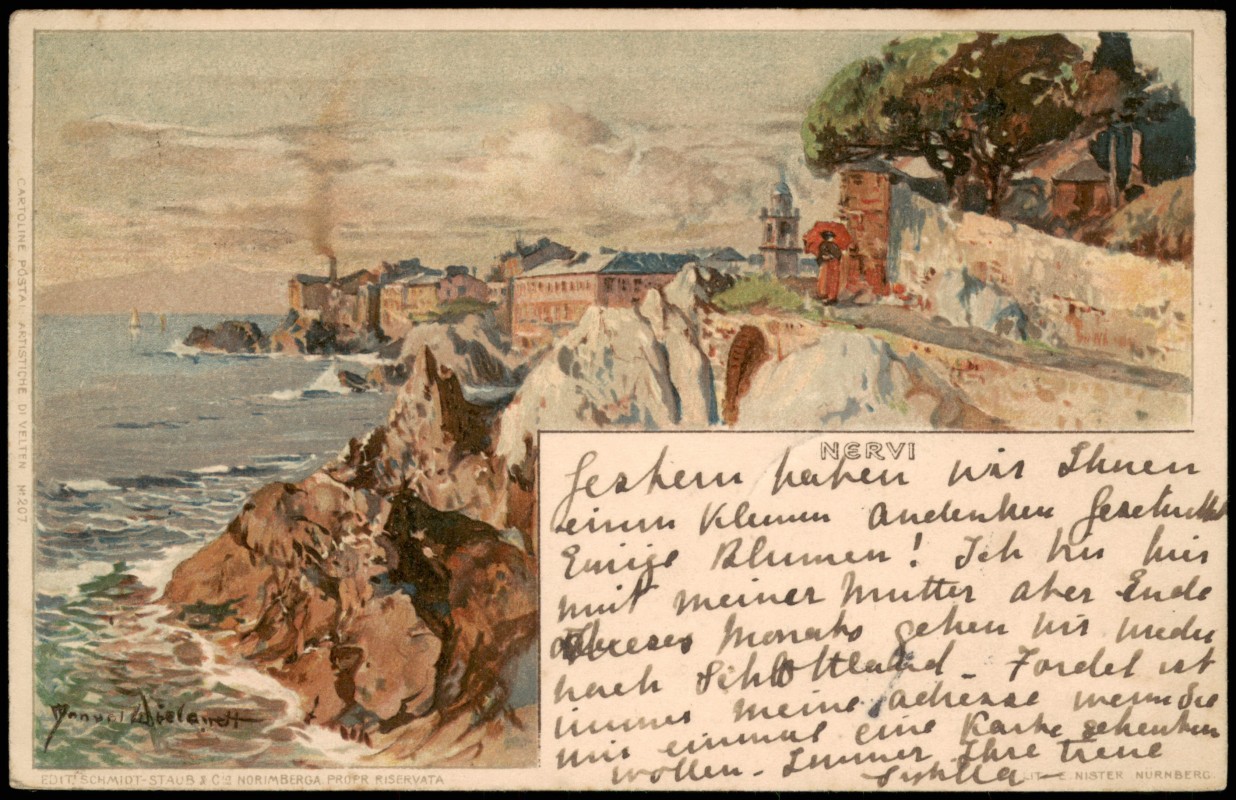 NERVI
Gestern haben wir Ihnen
einen kleinen andenken geschickt
Einige Blumen! Ich bin hier
mit meiner Mutter aber Ende
dieses Monats gehen wir wieder
nach Schottland - Fordel ist
immer meine adresse wenn Sie
mir einmal eine Karte schenken
wollen - Immer Ihre treue
Sybilla -
CARTOLINE POSTALI ARTISTICHE DI VELTEN No 207
Manuel Wielandt
EDIT. SCHMIDT-STAUB & Cie NORIMBERGA. PROPR RISERVATA
LIT. E. NISTER NÜRNBERG